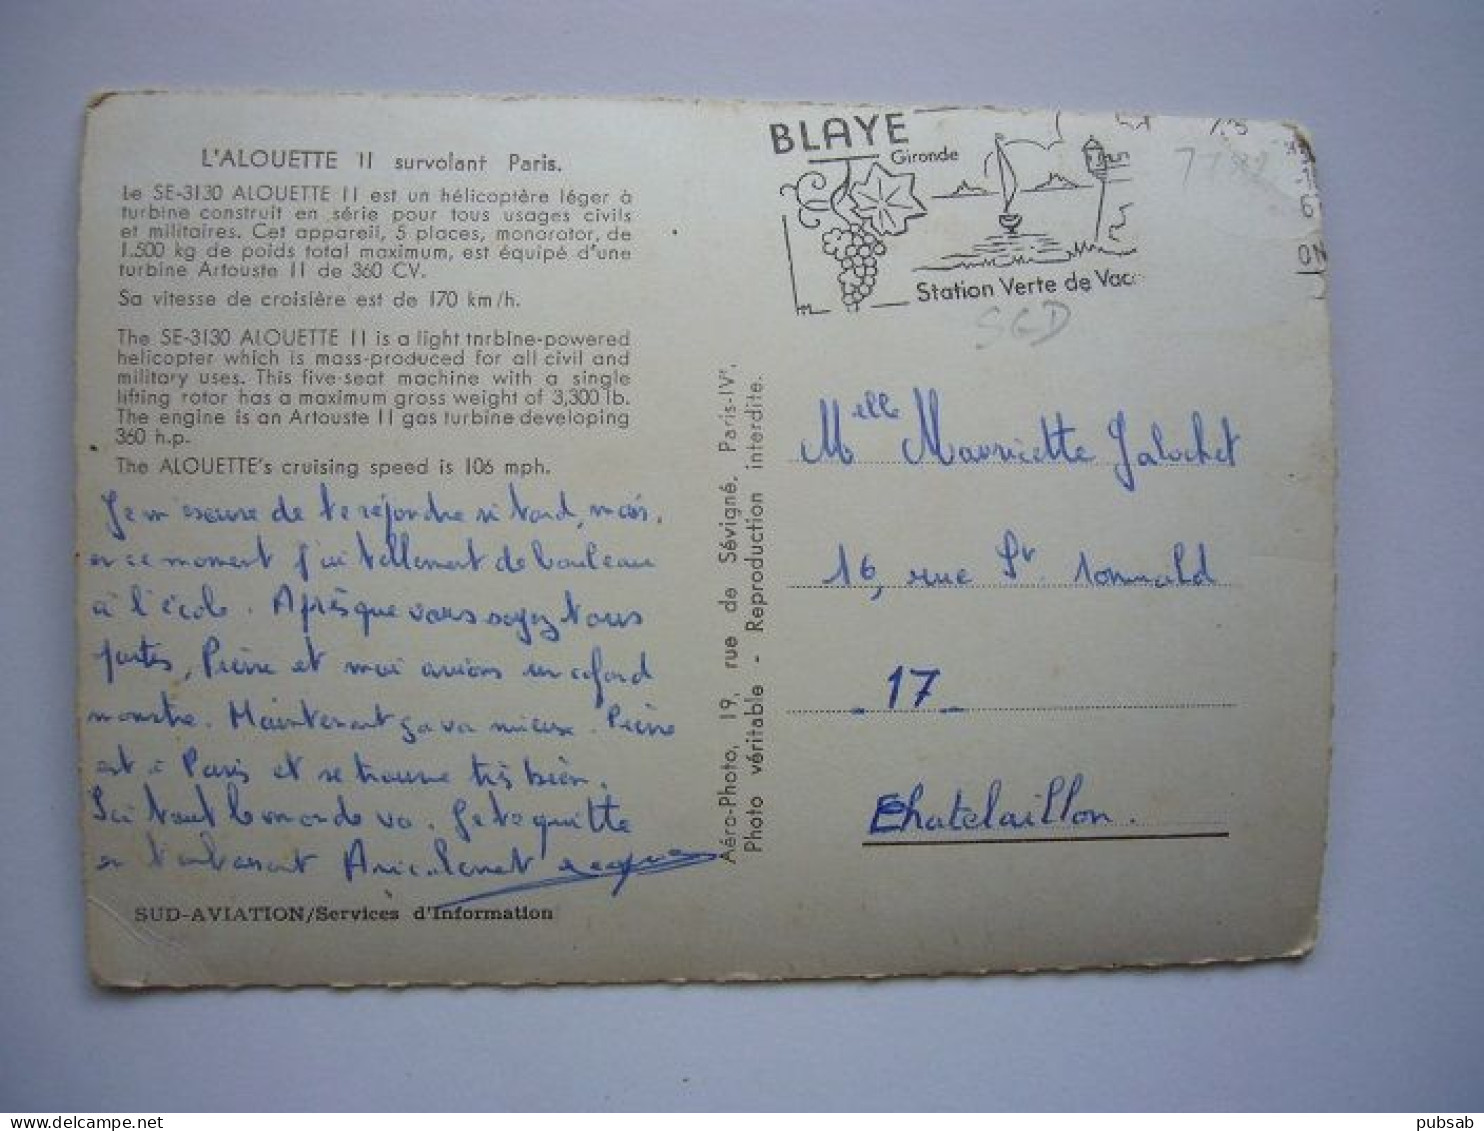 L'ALOUETTE II survolant Paris.
Le SE-3130 ALOUETTE II est un hélicoptère léger à
turbine construit en série pour tous usages civils
et militaires. Cet appareil, 5 places, monorotor, de
1.500 kg de poids total maximum, est équipé d'une
turbine Artouste II de 360 CV.
Sa vitesse de croisière est de 170 km/h.
The SE-3130 ALOUETTE II is a light tnrbine-powered
helicopter which is mass-produced for all civil and
military uses. This five-seat machine with a single
lifting rotor has a maximum gross weight of 3,300 lb.
The engine is an Artouste II gas turbine developing
360 h.p.
The ALOUETTE's cruising speed is 106 mph.
Je m'excuse de te répondre si tard, mais,
en ce moment j'ai tellement de bouleau
à l'école. Après que vous soyez tous
partis, Pierre et moi avions un cafard
monstre. Maintenant ça va mieux. Pierre
est à Paris et se trouve très bien.
Ici tout le monde va. Je te quitte
en t'embrassant
SUD-AVIATION/Services d'Information
Aéro-Photo, 19, rue de Sévigné, Paris-IVe.
Photo véritable - Reproduction interdite.
BLAYE
Gironde
Station Verte de Vac
SGD
Melle Mauricette Jalochet
16, rue St. romuald
- 17 -
Chatelaillon.
pubsab